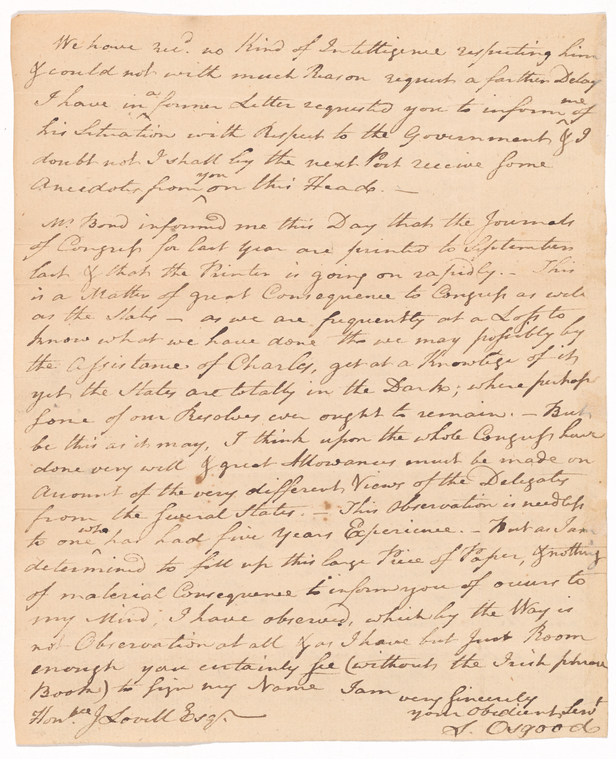 We have recd. no Kind of Intelligence respecting him
& could not with much Reason request a farther Delay
I have in a former Letter requested you to inform me of
his Situation with Respect to the Government & I
doubt not I shall by the next Post receive some
Anecdotes from you on this Head. —
Mr. Bond informed me this Day that the Journals
of Congress for last Year are printed to September
last & that the Printer is going on rapidly. — This
is a Matter of great Consequence to Congress as well
as the States — as we are frequently at a Loss to
know what we have done tho we may possibly by
the Assistance of Charles, get at a Knowlege of it,
yet the States are totally in the Dark; where perhaps
some of our Resolves ever ought to remain. — But
be this as it may, I think upon the whole Congress have
done very well & great Allowances must be made on
Account of the very different Views of the Delegates
from the several States. — This Observation is needless
to one who has had five Years Experience. — But as I am
determined to fill up this large Piece of Paper, & nothing
of material Consequence to inform you of occurs to
my Mind, I have observed, which by the Way is
not Observation at all & as I have but just Room
enough you certainly see (without the Irish phrase
Book) to sign my Name I am
very sincerely
your obedient Servt
Honble J Lovell Esqr.
S. Osgood